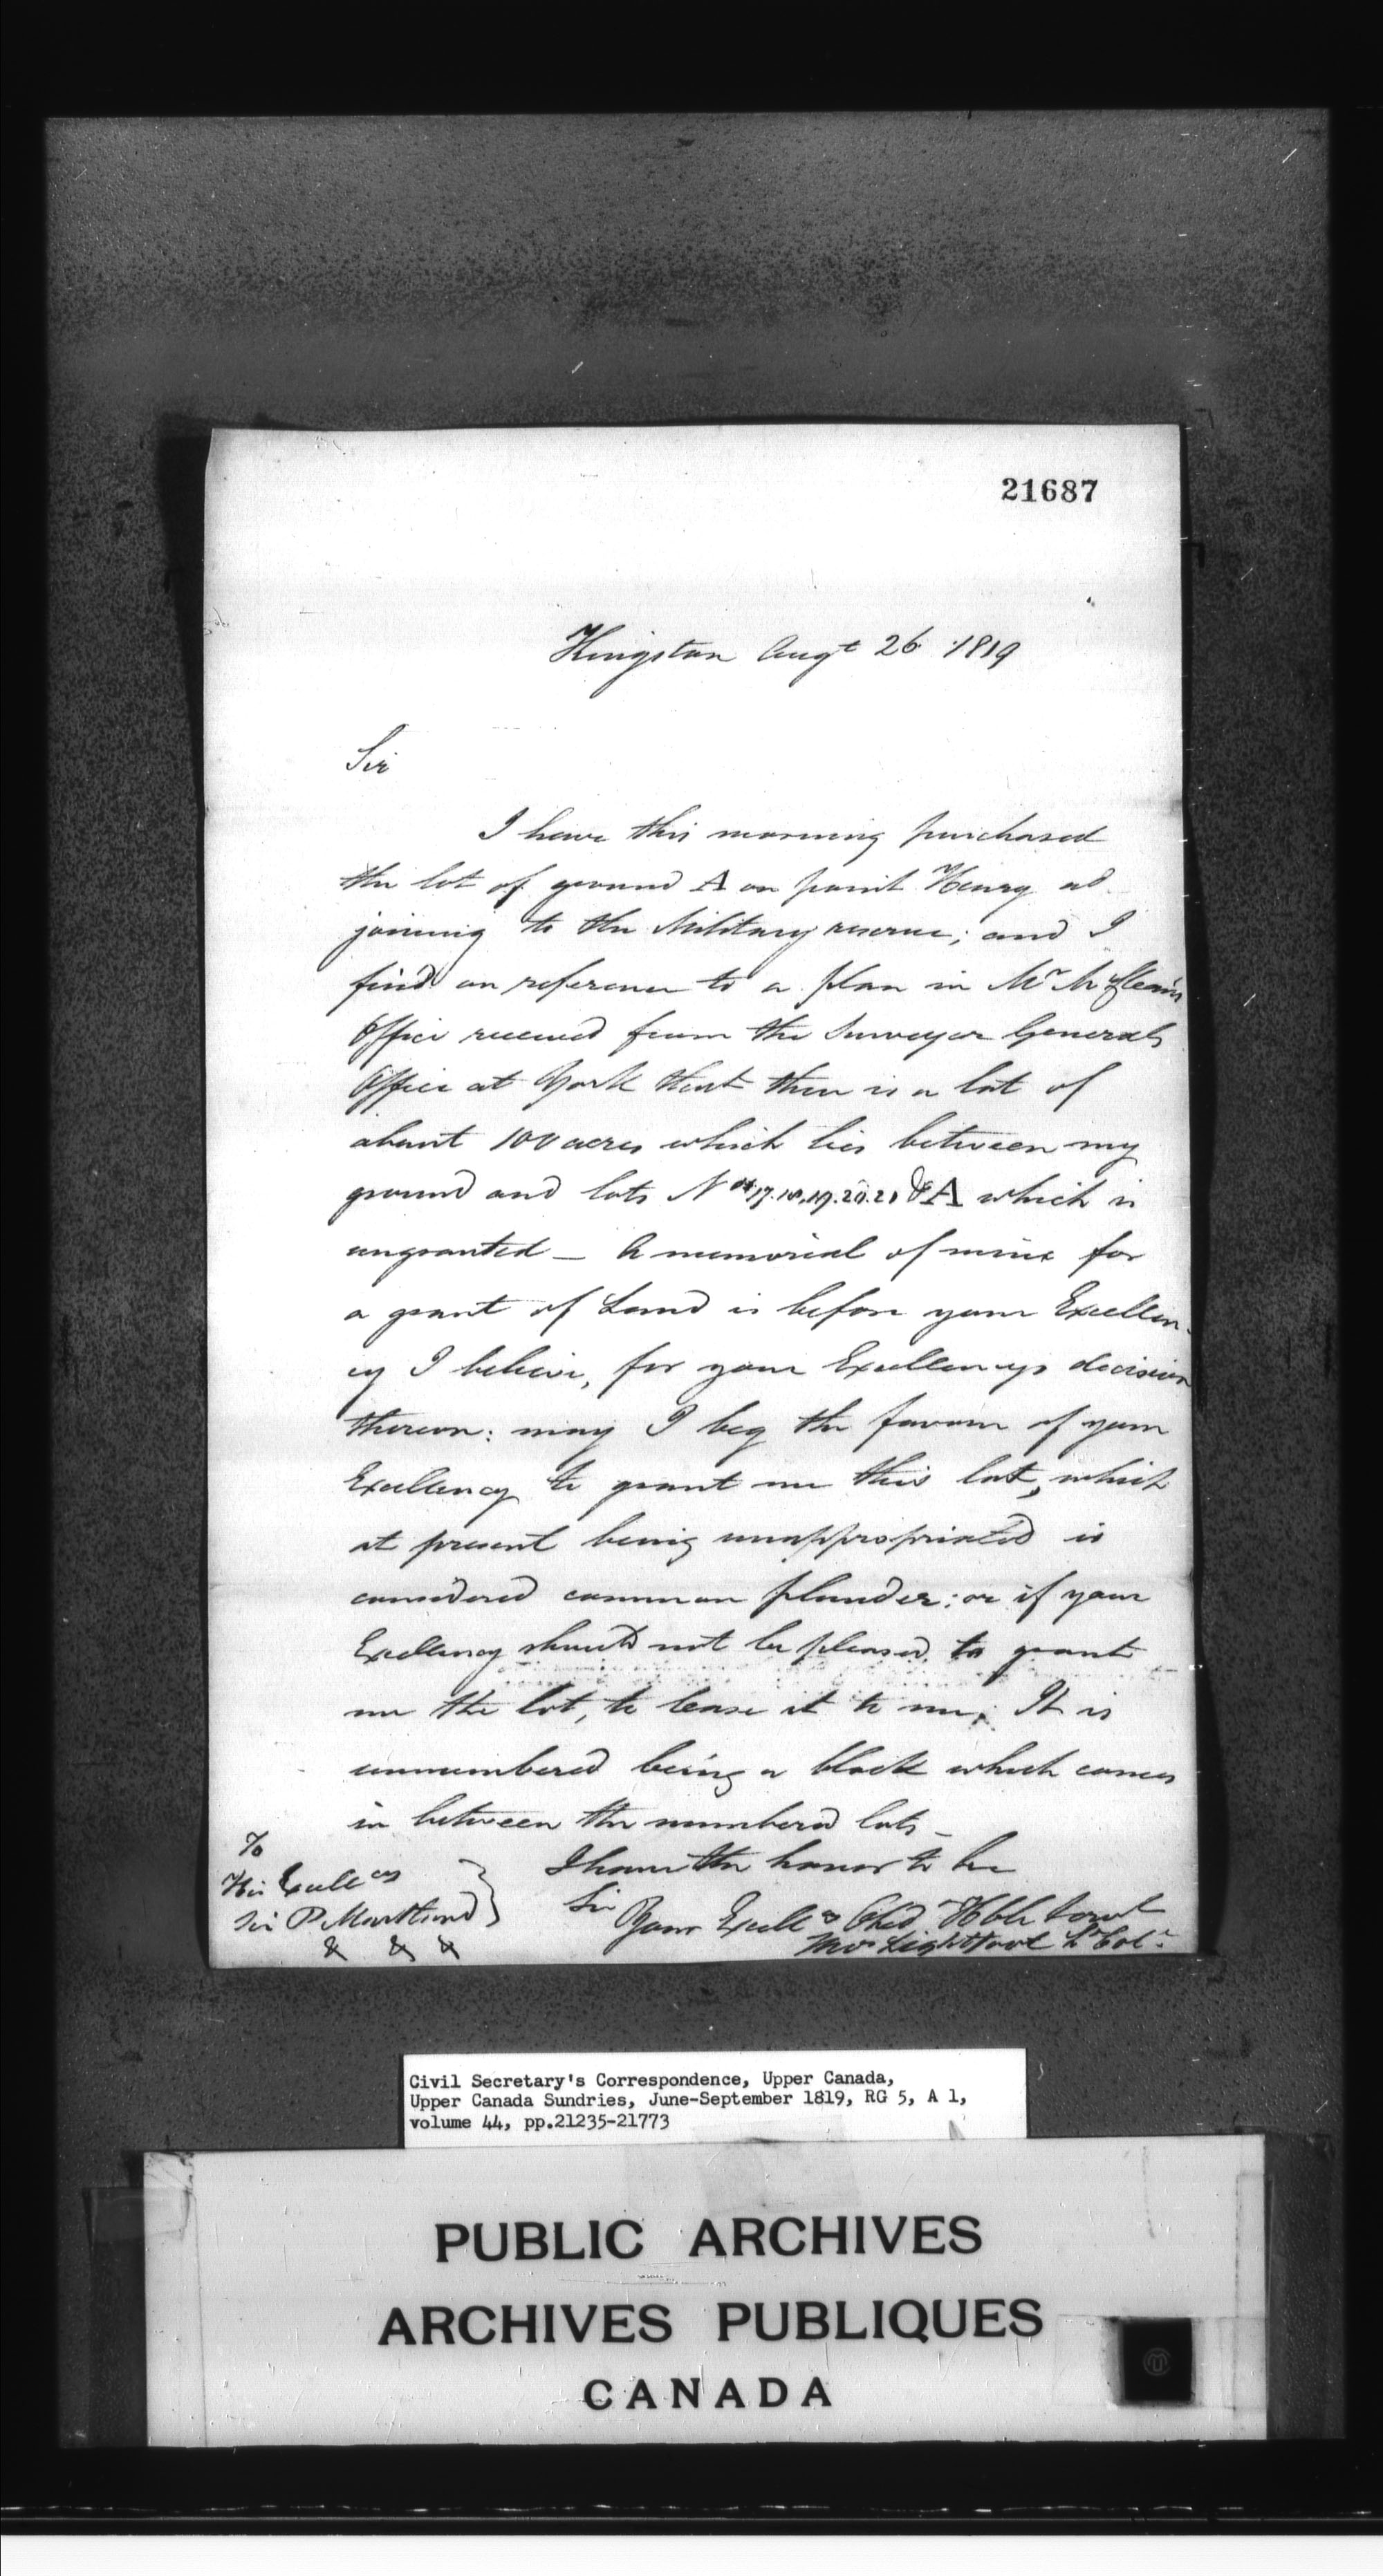 21687
Kingston Augt 26 1819
Sir
I have this morning purchased
the lot of ground A on point Henry ad
joining to the Military reserve; and I
find on reference to a plan in Mr
Office received from the Surveyor Generals
Office at York that there is a lot of
about 100 acres which lies between my
ground and lots Nos 17.18.19.20.21 & A which is
ungranted _ A memorial of mine for
a grant of Land is before your Excellen-
cy I believe, for your Excellencys decision
thereon: may I beg the favour of your
Excellency to grant me this lot, which
at present being unappropriated is
considered common plunder: or if your
Excellency should not be pleased to grant
me the lot, to lease it to me. It is
unnumbered being a block which comes
in between the numbered lots _
I have the honor to be
Sir
Your Excellcys Obed Hble Servt
Lightfoot Lt Coln
To
His Excellcy
Sir P Maitland
& & &
Civil Secretary's Correspondence, Upper Canada,
Upper Canada Sundries, June-September 1819, RG 5, A 1,
volume 44, pp.21235-21773
PUBLIC ARCHIVES
ARCHIVES PUBLIQUES
CANADA